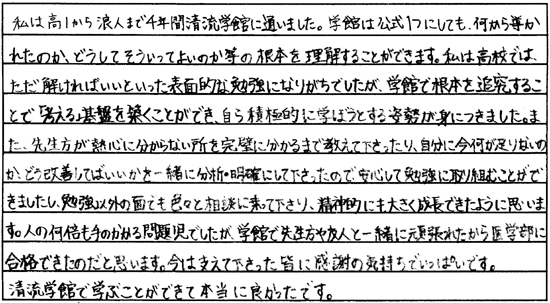 私は高1から浪人まで4年間清流学館に通いました。学館は公式1つにしても、何から導か
れたのか、どうしてそういってよいのか等の根本を理解することができます。私は高校では、
ただ解ければいいといった表面的な勉強になりがちでしたが、学館で根本を追究するこ
とで「考える」基盤を築くことができ、自ら積極的に学ぼうとする姿勢が身につきました。ま
た、先生方が熱心に分からない所を完璧に分かるまで教えて下さったり、自分に今何が足りないの
か、どう改善してばいいかを一緒に分析・明確にして下さったので、安心して勉強に取り組むことがで
きましたし、勉強以外の面でも色々と相談に乗って下さり、精神的にも大きく成長できたように思いま
す。人の何倍も手のかかる問題児でしたが、学館で先生方や友人と一緒に頑張れたから医学部に
合格できたのだと思います。今は支えて下さった皆に感謝の気持ちでいっぱいです。
清流学館で学ぶことができて本当に良かったです。